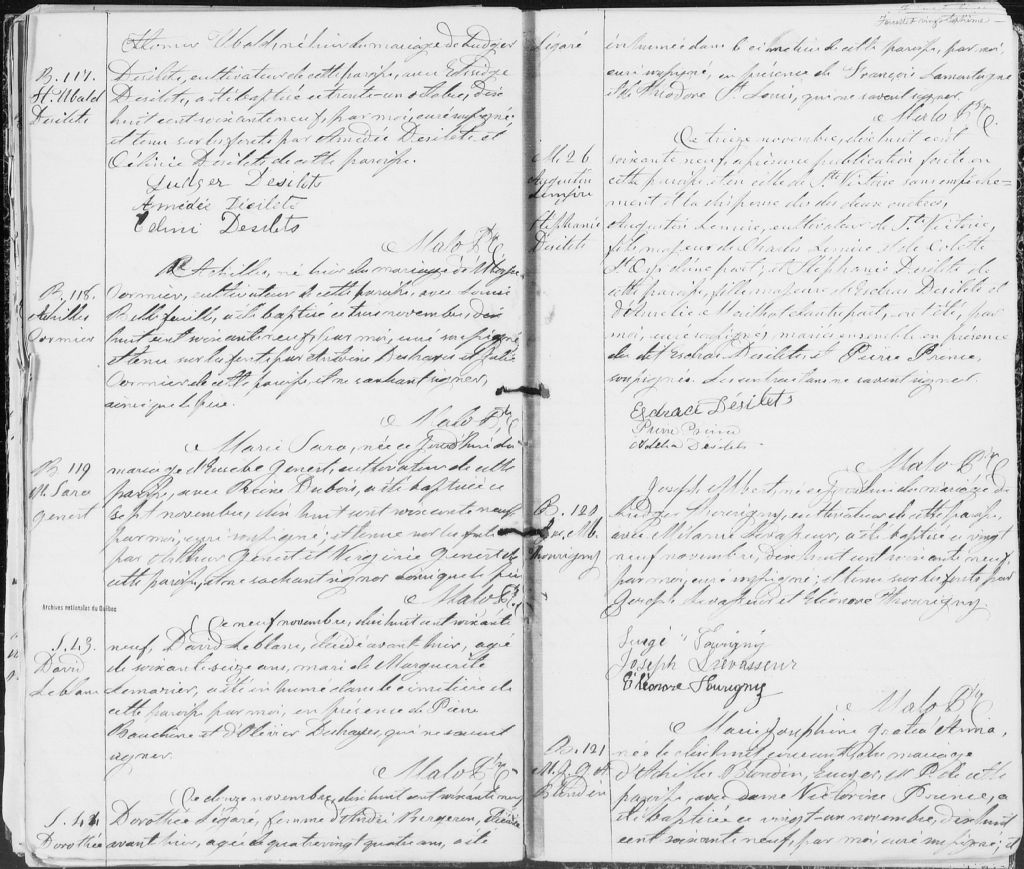 B. 117.
H. Ubald
Desilets
Homer Ubald, né hier du mariage de Ludger
Desilets, cultivateur de cette paroisse, avec Edwidge
Desilets, a été baptisé ce trente-un octobre, dix
huit cent soixante neuf, par moi, curé soussigné
et tenu sur les fonts par Amédée Desilets et
Célinie Desilets, de cette paroisse.
Ludger Desilets
Amédée Desilets
Célini Desilets
Malo Ptre
B. 118.
Achille
Cormier
Achille, né hier du mariage de
Cormier, cultivateur de cette paroisse, avec Louise
Bellefeuille, a été baptisé ce trois novembre, dix
huit cent soixante neuf, par moi, curé soussigné
et tenu sur les fonts, par Antoine Deshaies et Julie
Cormier de cette paroisse, et ne sachant signer,
ainsi que le père.
Malo Ptre
B. 119
M. Sara
Genest
Marie Sara, née ce jourd'hui du
mariage d'Eusèbe Genest, cultivateur de cette
paroisse, avec Reine Dubois, a été baptisée ce
sept novembre, dix huit cent soixante neuf
par moi, curé soussigné; et tenue sur les fonts
par Genest et Virginie Genest de
cette paroisse, et ne sachant signer ainsi que le père
Malo Ptre
Archives nationales du Québec
S. 43.
David
Leblanc
Ce neuf novembre, dix huit cent soixante
neuf, David Leblanc, décédé avant hier, agé
de soixante seize ans, mari de Marguerite
Lemarier, a été inhumé dans le cimetière de
cette paroisse par moi, en présence de Pierre
et d'Olivier Deshaies, qui ne savent
signer.
Malo Ptre
S. 44
Dorothée
Ce douze novembre, dix huit cent soixante neuf
Dorothée Légaré, femme d'André Bergeron, décédée
avant hier, agée de quatre vingt quatre ans, a été
Feuillet vingt-septième
Légaré
inhumée dans le cimetière de cette paroisse, par moi,
curé soussigné, en présence de François Lamontagne
et de Théodore St. Louis, qui ne savent signer.
Malo Ptre.
M. 26
Augustin
Lemire
Stéphanie
Desilets
Ce treize novembre, dix huit cent
soixante neuf, après une publication faite en
cette paroisse et en celle de Ste Victoire sans empêche-
ment et la dispense des deux autres,
Augustin Lemire, cultivateur de Ste Victoire,
fils majeur de Charles Lemire et de Colette
St Cyr d'une part; et Stéphanie Desilets de
cette paroisse, fille majeure de Esdras Desilets et
d'Aurélie Meuthot d'autre part, ont été, par
moi, curé soussigné, mariés ensemble en présence
du dit Esdras Desilets et Pierre Prince,
soussignés. Les contractans ne savent signer.
Esdrace Désilets
Pierre Prince
Odelia Desilets
Malo Ptre
B. 120
Jos. Alb.
Thourigny
Joseph Albert, né ce jourd'hui du mariage de
Thourigny, cultivateur de cette paroisse,
avec Mélanie Levasseur, a été baptisé ce vingt
neuf novembre, dix huit cent soixante neuf,
par moi, curé soussigné; et tenu sur les fonts par
Joseph Levasseur et Eléonore Thourigny.
Tourigny
Joseph Levasseur
Eléonore Tourigny
Malo Ptre
B. 121
M. J. G. A
Blondin
Marie Josephine Gratia Anna,
née le dix huit courant du mariage
d'Achilles Blondin, Ecuyer, M. P. de cette
paroisse, avec dame Victorine Prince, a
été baptisée ce vingt-un novembre, dix huit
cent soixante neuf, par moi, curé soussigné; et